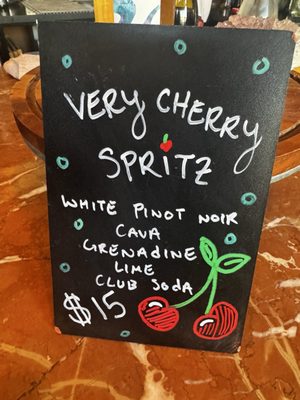 VERY CHERRY
SPRITZ
WHITE PINOT NOIR
CAVA
GRENADINE
LIME
CLUB SODA
$15